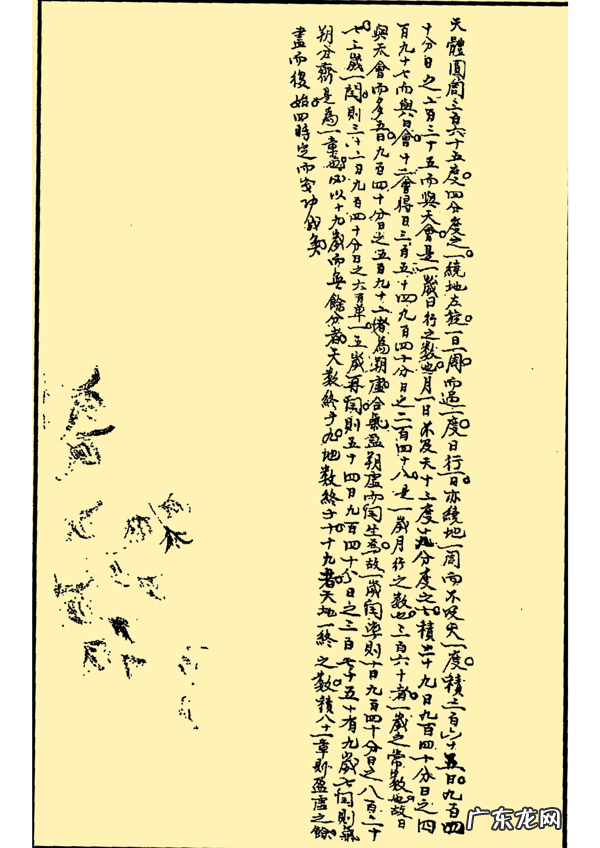 天體圓周三百六十五度四分度之一繞地左旋一日一周而過一度日行一日亦繞地一周而不及天一度積三百六十五日九百四
十分日之二百三十五而與天會是一歲日行之数也月一日不及天十三度十九分度之七積二十九日九百四十分日之四
百九十七而與日會十二會得日三百五十四九百四十分日之三百四十八是一歲月行之数也三百六十者一歲之常数也故日
與天會而多五日九百四十分日之五百九十二者為朔虚合氣盈朔虚而閏生焉故一歲閏率則十日九百四十分日之八百二十
七三歲一閏則三十二日九百四十分日之六百單一五歲再閏則五十四日九百四十分日之三百七十五十有九歲七閏則氣
朔分齊是為一章也以十九歲而無餘分者天数終于九地数終于十十九者天地一終之数積八十一章則盈虚之餘
盡而復始四時定而歲功成矣
广东龙网